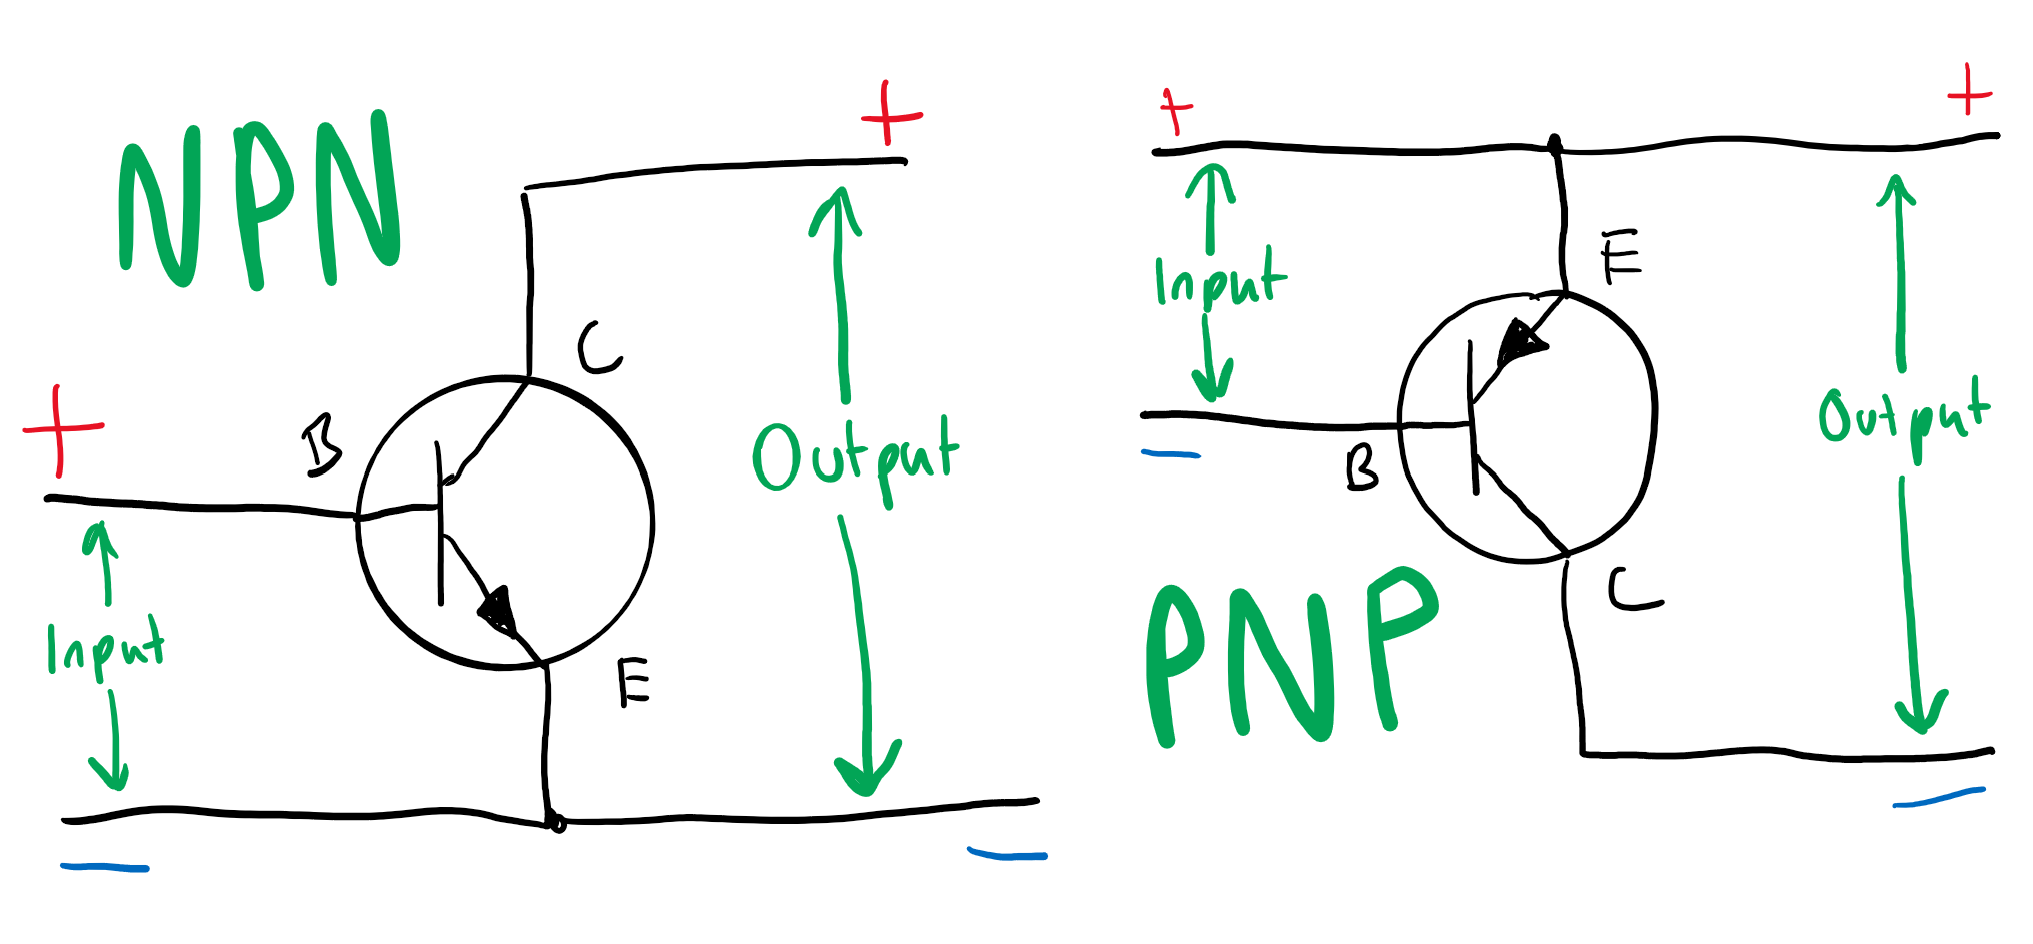 NPN
+
C
+
B
Output
Input
E
−
−
+
+
E
Input
Output
−
B
C
PNP
−